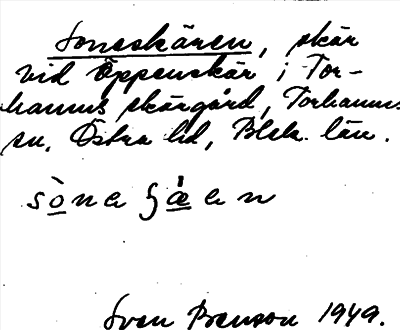 Soneskären, skär
vid Öppenskär i Tor-
hamns skärgård, Torhamns
sn, Östra hd, Blek. län.
Sven Benson 1949.